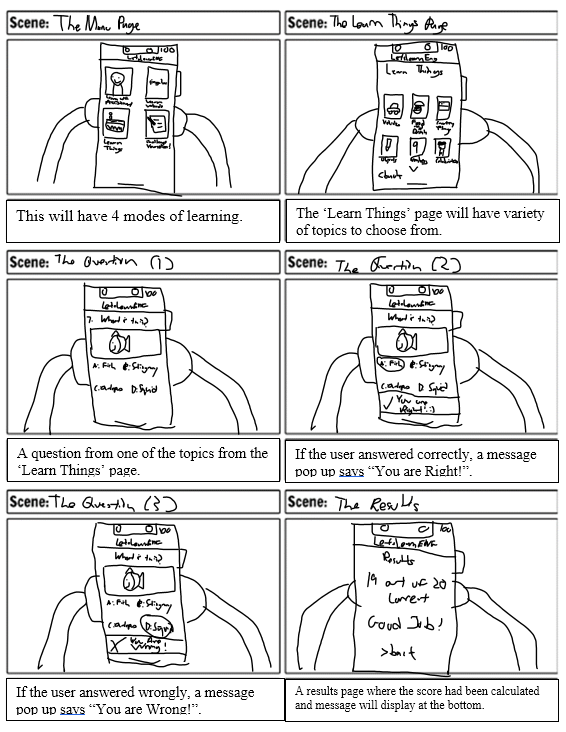 Scene: The Menu Page
100
Learn
Things
This will have 4 modes of learning.
Scene: The Learn Things Page
100
Learn Things
The ‘Learn Things’ page will have variety
of topics to choose from.
Scene: The Question (1)
100
7. What is this?
A: Fish B: Stingray
D: Squid
A question from one of the topics from the
‘Learn Things’ page.
Scene: The Question (2)
100
What is this?
A: Fish B: Stingray
D: Squid
You are
Right! :)
If the user answered correctly, a message
pop up says “You are Right!”.
Scene: The Question (3)
100
What is this?
A: Fish B: Stingray
D: Squid
You Are
Wrong!
If the user answered wrongly, a message
pop up says “You are Wrong!”.
Scene: The Results
100
Results
19 out of 20
Correct
Good Job!
A results page where the score had been calculated
and message will display at the bottom.